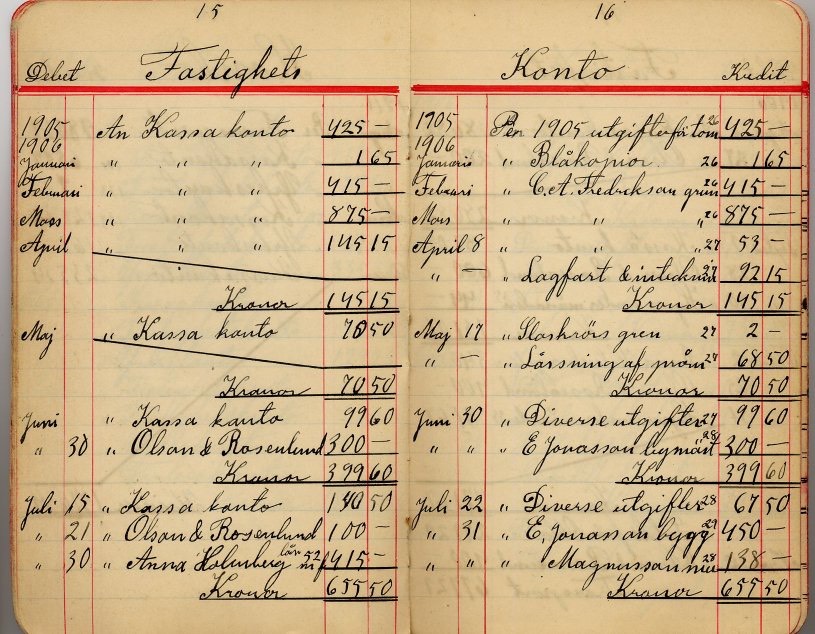 15
Debet Fastighets
1905 An Kassa konto 425 —
1906
Januari " " " 1 65
Februari " " " 415 —
Mars " " " 875 —
April " " " 145 15
Kronor 145 15
Maj " Kassa konto 70 50
Kronor 70 50
Juni " Kassa konto 99 60
" 30 " Olson & Rosenlund 300 —
Kronor 399 60
Juli 15 " Kassa konto 140 50
" 21 " Olson & Rosenlund 100 —
" 30 " Anna Holmberg 415 —
Kronor 655 50
16
Konto Kredit
1905 Per 1905 utgifter 26 425 —
1906
Januari " Blåkopior 26 1 65
Februari " C.A. Fredrikson 26 415 —
Mars " " " 26 875 —
April 8 " " " 27 53 —
" — " Lagfart & 27 92 15
Kronor 145 15
Maj 17 " 27 2 —
" — " Låssning af 27 68 50
Kronor 70 50
Juni 30 " Diverse utgifter 27 99 60
" " E Jonasson 28 300 —
Kronor 399 60
Juli 22 " Diverse utgifter 28 67 50
" 31 " E, Jonasson bygg 29 450 —
" " " Magnusson 28 138 —
Kronor 655 50